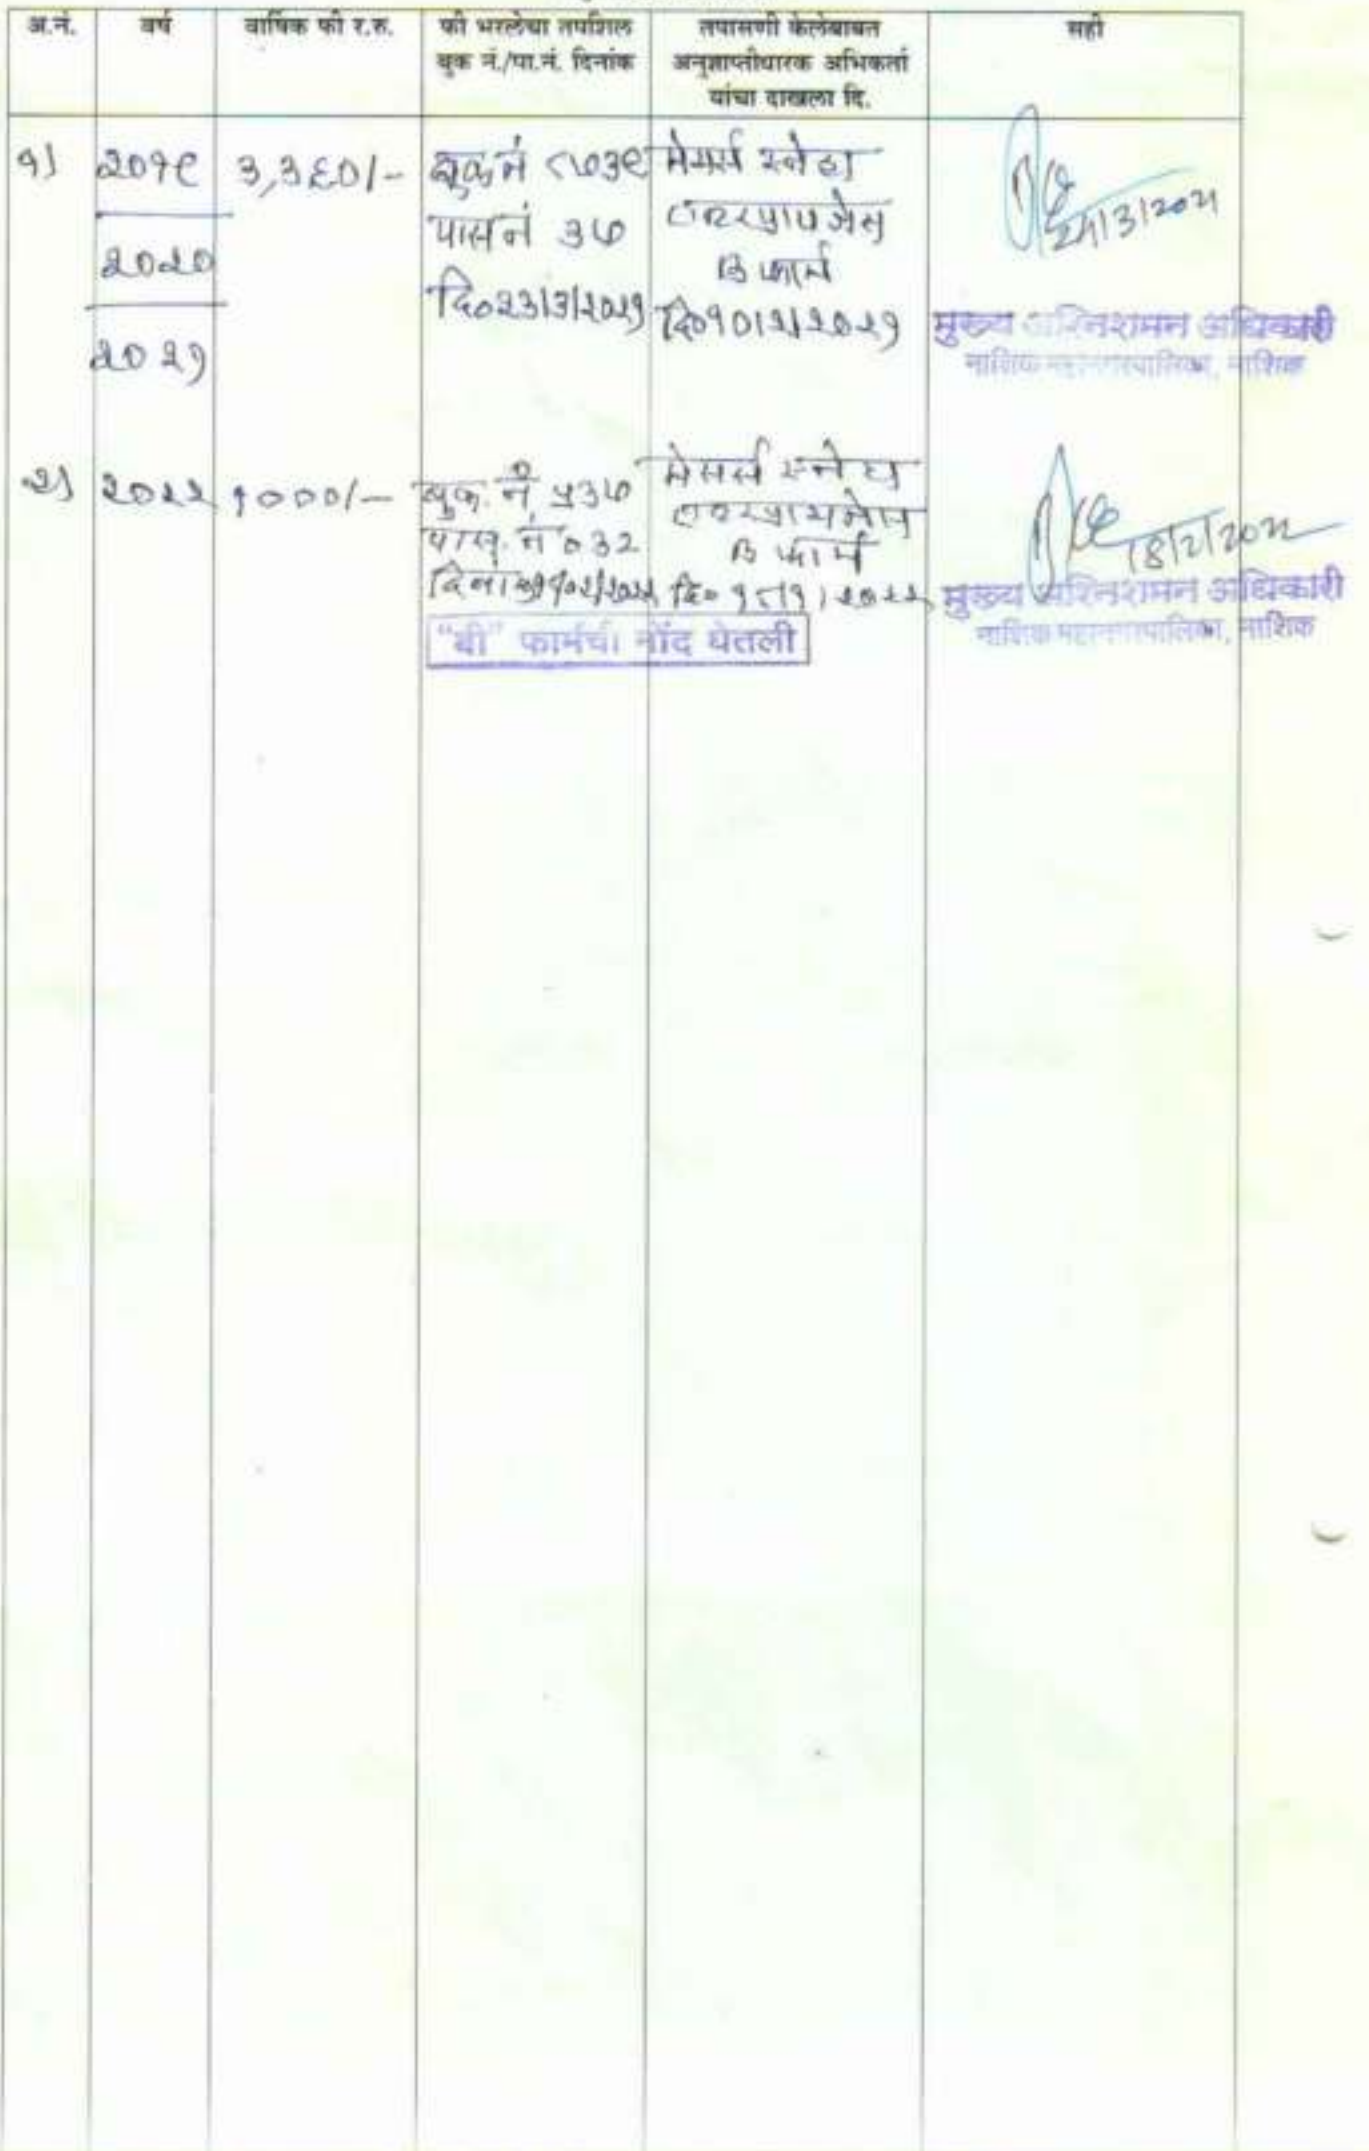 अ.नं.
वर्ष
वार्षिक फी र.रु.
फी भरलेचा तपशिल
बुक नं./पा.नं. दिनांक
तपासणी केलेबाबत
अनुज्ञाप्तीधारक अभिकर्ता
यांचा दाखला दि.
सही
१)
२०१९
२०२०
२०२१
३,३६०/-
बुक नं ८७३९
पास नं ३७
दि०२३/३/२०२१
मेसर्स स्नेहा
B फार्म
दि०१०/२/२०२१
24/3/2021
मुख्य अग्निशमन अधिकारी
नाशिक महानगरपालिका, नाशिक
२)
२०२२
१०००/-
बुक. नं ५३७
पास. नं ०३२
मेसर्स स्नेहा
B फार्म
दि० १८/१/२०२२
18/2/2022
मुख्य अग्निशमन अधिकारी
नाशिक महानगरपालिका, नाशिक
"बी" फार्मची नोंद घेतली